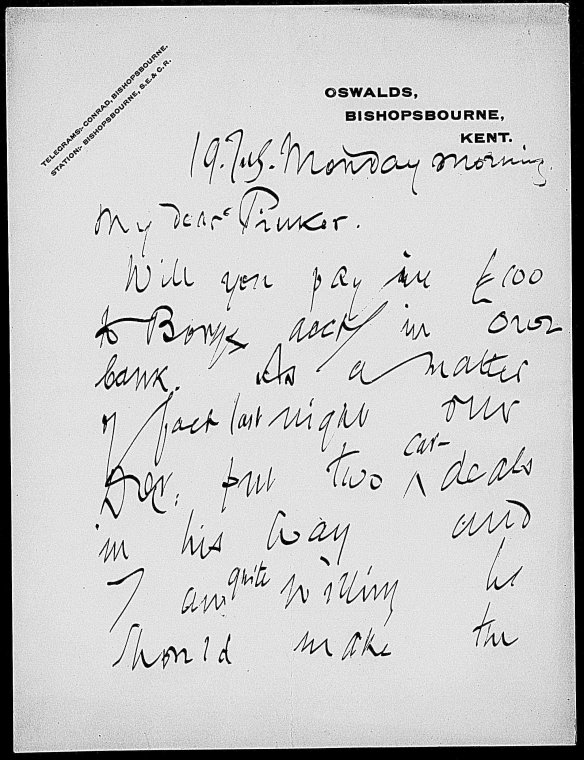 TELEGRAMS:- CONRAD, BISHOPSBOURNE.
STATION:- BISHOPSBOURNE, S.E.& C.R.
OSWALDS,
BISHOPSBOURNE,
KENT.
19. Monday morning.
My dear Pinker.
Will you pay in £100
to Borys acct in our
bank. As a matter
of fact last night our
put two car-deals
in his way and
I am quite willing he
should make the